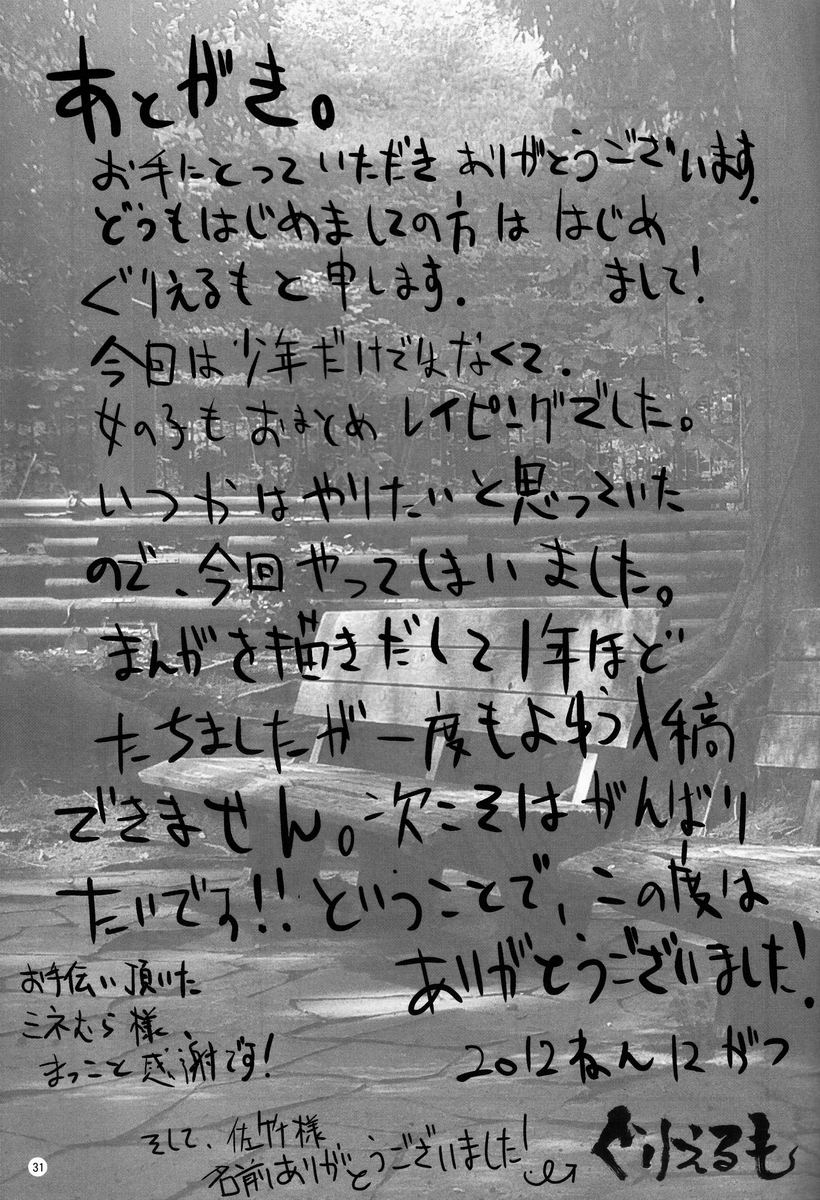 あとがき。
お手にとっていただき ありがとうございます.
どうもはじめましての方は はじめ
ぐりえるもと申します. まして!
今回は少年だけではなくて、
女の子もおまとめ レイピングでした。
いつかはやりたいと思っていた
ので、今回やってしまいました。
まんがを描きだして1年ほど
たちましたが一度もよゆう入稿
できません。次こそはがんばり
たいです!! ということで、この度は
ありがとうございました!
お手伝い頂いた
ミネむら様、
まっこと感謝です!
2012ねん12がつ
そして、佐竹様
名前ありがとうございました!
ぐりえるも
31